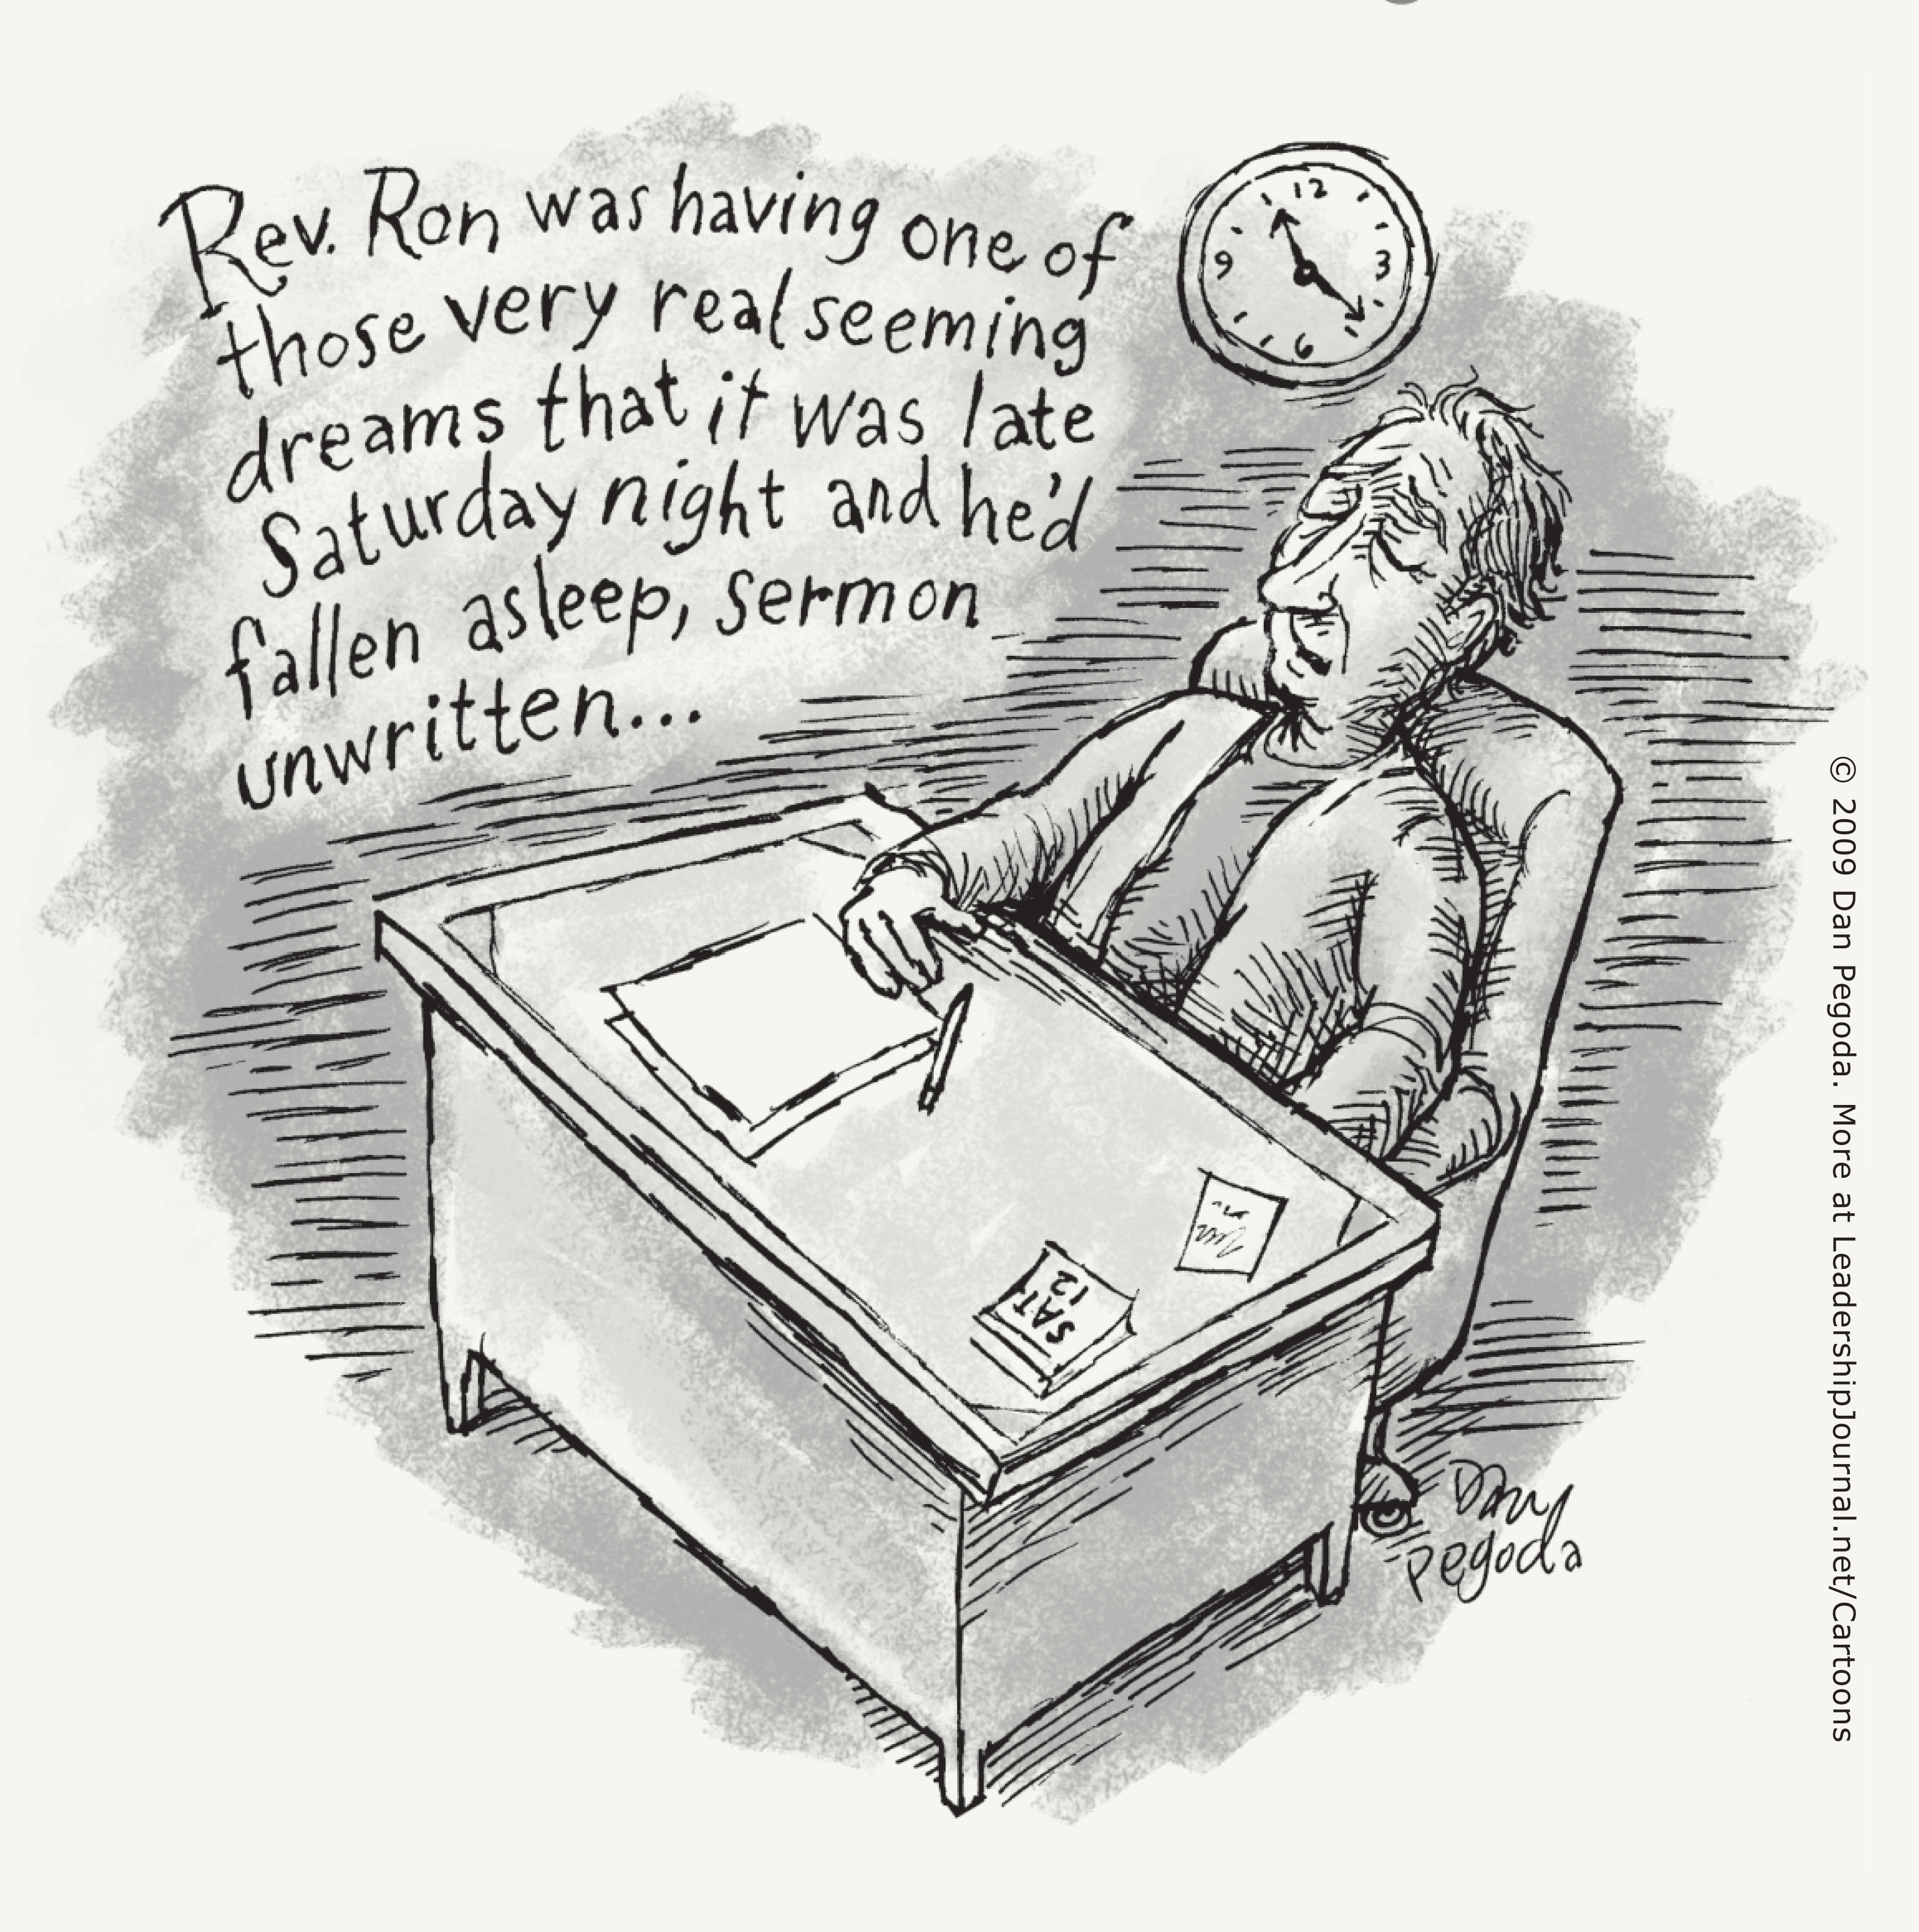 Rev. Ron was having one of
those very real seeming
dreams that it was late
Saturday night and he'd
fallen asleep, sermon
unwritten...
12
3
6
9
SAT
12
Dan
Pegoda
© 2009 Dan Pegoda. More at LeadershipJournal.net/Cartoons